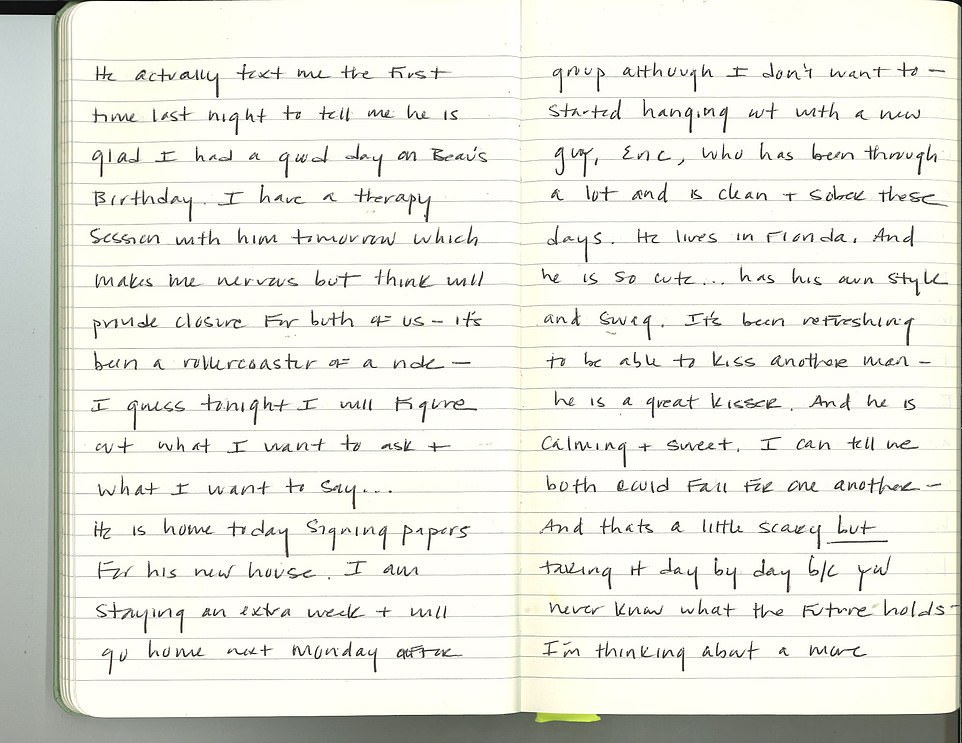 He actually text me the first
time last night to tell me he is
glad I had a good day on Beau's
Birthday. I have a therapy
session with him tomorrow which
makes me nervous but think will
provide closure for both of us - it's
been a rollercoaster of a ride -
I guess tonight I will figure
out what I want to ask +
what I want to say...
He is home today signing papers
for his new house. I am
staying an extra week + will
go home next Monday after
group although I don't want to -
started hanging out with a new
guy, Eric, who has been through
a lot and is clean + sober these
days. He lives in Florida. And
he is so cute... has his own style
and swag. It's been refreshing
to be able to kiss another man -
he is a great kisser. And he is
calming + sweet. I can tell we
both could fall for one another -
And thats a little scary but
taking it day by day b/c you
never know what the future holds-
I'm thinking about a move